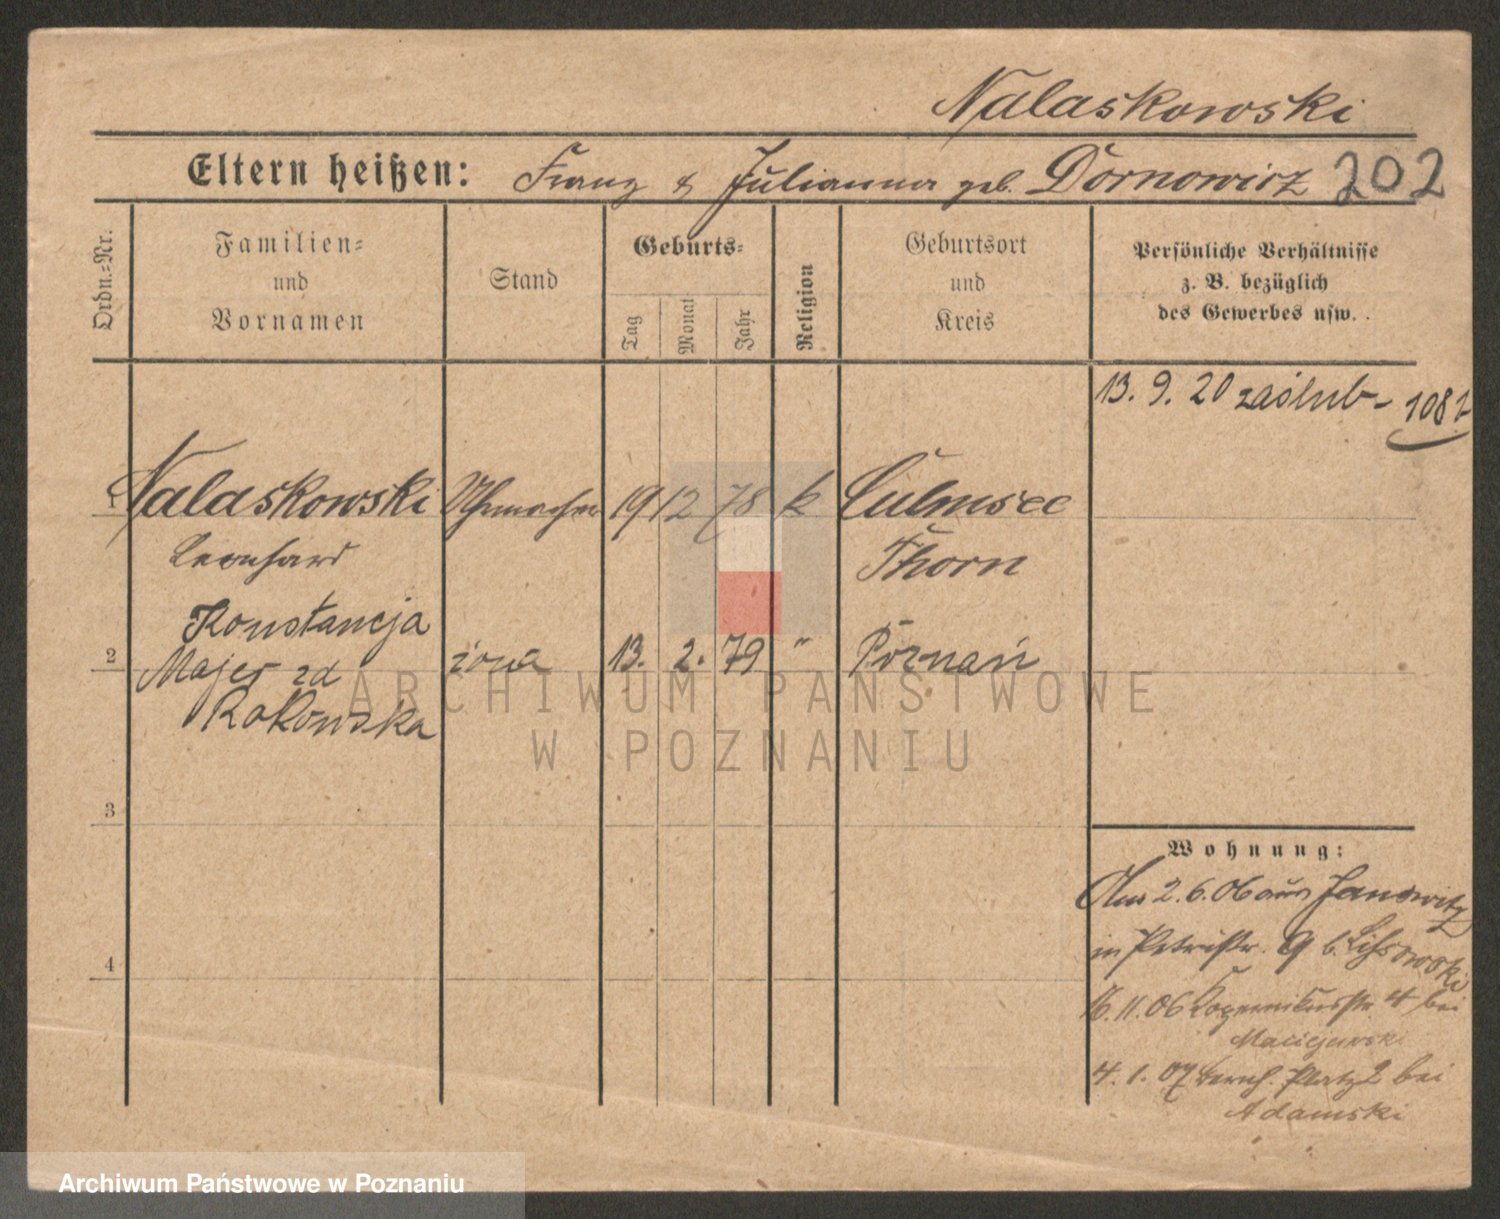 Nalaskowski
Eltern heißen: Franz & Julianna geb. Dornowicz 202
Ordn.=Nr.
Familien=
und
Vornamen
Stand
Geburts=
Tag
Monat
Jahr
Religion
Geburtsort
und
Kreis
Persönliche Verhältnisse
z. B. bezüglich
des Gewerbes usw.
13. 9. 20 zaślub-
1 Nalaskowski Uhrmacher 19 12 78 k Culmsee
Leonhard Thorn
Konstancja
2 Majer zd żona 13. 2. 79 " Poznań
Rakowska
3
4
Wohnung:
2. 6. 06 aus Janowitz
in Petristr. 9 b. Lissowski
16. 11. 06 Kopernikusstr 4 bei
Maciejewski
4. 1. 07 Bernh. Platz 2 bei
Adamski
ARCHIWUM PAŃSTWOWE
W POZNANIU
Archiwum Państwowe w Poznaniu